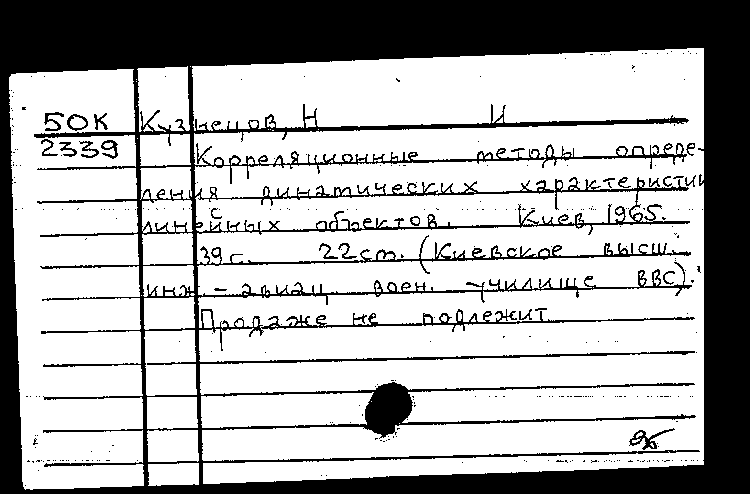 50К Кузнецов, Н И
2339 Корреляционные методы опреде-
ления динамических характеристик
линейных объектов. Киев, 1965.
39 с. 22cm. (Киевское высш.
инж.-авиац. воен. училище ВВС).
Продаже не подлежит